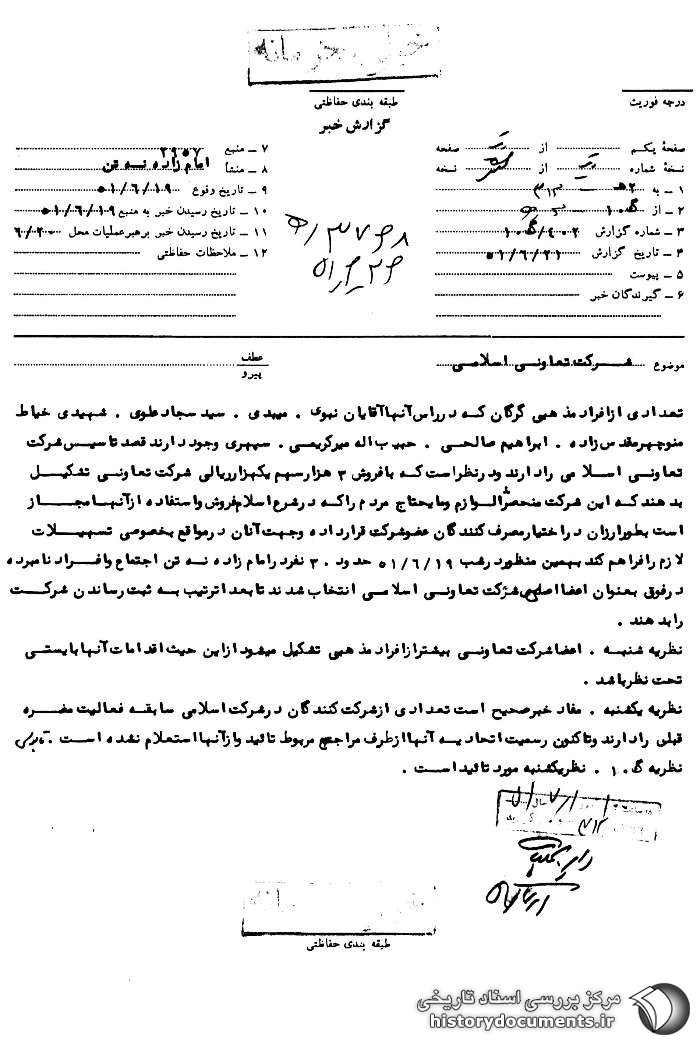 خیلی محرمانه
درجه فوریت
طبقه بندی حفاظتی
گزارش خبر
صفحهٔ یکم از صفحه
نسخهٔ شماره از نسخه
۱ ـ به ۲۰هـ ۳۱۲
۲ ـ از ۱۰گ
۳ ـ شماره گزارش ۱۰گ/۴۰۲
۴ ـ تاریخ گزارش ۵۱/۶/۲۱
۵ ـ پیوست
۶ ـ گیرندگان خبر
۷ ـ منبع ۲۹۵۷
۸ ـ منشأ امام زاده نه تن
۹ ـ تاریخ وقوع ۵۱/۶/۱۹
۱۰ ـ تاریخ رسیدن خبر به منبع ۵۱/۶/۱۹
۱۱ ـ تاریخ رسیدن خبر برهبر عملیات محل ۶/۲۰
۱۲ ـ ملاحظات حفاظتی
موضوع شرکت تعاونی اسلامی
عطف
پیرو
تعدادی از افراد مذهبی گرگان که در راس آنها آقایان نبوی . میبدی . سید سجاد علوی . شهیدی خیاط
منوچهر مقدس زاده . ابراهیم صالحی . حبیب اله میرکریمی . سپهری وجود دارند قصد تاسیس شرکت
تعاونی اسلامی را دارند و در نظر است که با فروش ۳ هزار سهم یکهزار ریالی شرکت تعاونی تشکیل
بدهند که این شرکت منحصرا لوازم و مایحتاج مردم را که در شرع اسلام فروش و استفاده از آنها مجاز
است بطور ارزان در اختیار مصرف کنندگان عضو شرکت قرار داده و جهت آنان در مواقع بخصوصی تسهیلات
لازم را فراهم کند بهمین منظور در شب ۵۱/۶/۱۹ حدود ۳۰ نفر در امام زاده نه تن اجتماع و افراد نامبرده
در فوق بعنوان اعضا اصلی شرکت تعاونی اسلامی انتخاب شدند تا بعدا ترتیب به ثبت رساندن شرکت
را بدهند .
نظریه شنبه . اعضا شرکت تعاونی بیشتر از افراد مذهبی تشکیل میشود از این حیث اقدامات آنها بایستی
تحت نظر باشد .
نظریه یکشنبه . مفاد خبر صحیح است تعدادی از شرکت کنندگان در شرکت اسلامی سابقه فعالیت مضره
قبلی را دارند و تاکنون رسمیت اتحادیه آنها از طرف مراجع مربوط تائید و از آنها استعلام نشده است .
نظریه ۱۰گ . نظر یکشنبه مورد تائید است .
طبقه بندی حفاظتی
مرکز بررسی اسناد تاریخی
historydocuments.ir